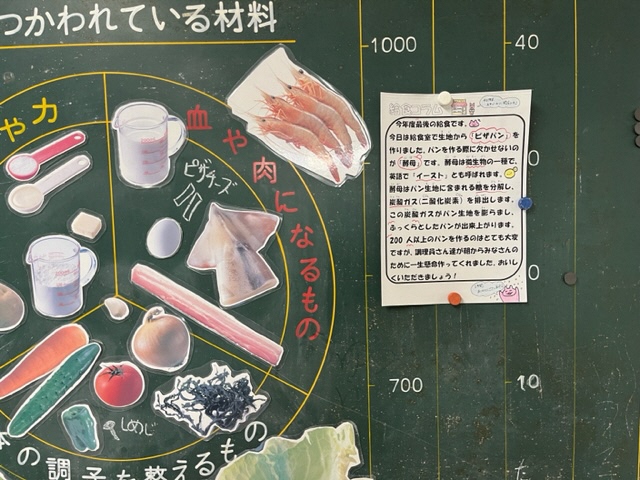 つかわれている材料
や力
血や肉になるもの
ピザチーズ
しめじ
の調子を整えるもの
1000
700
40
0
0
10
給食コラム
今年度最後の給食です。
今日は給食室で生地から「ピザパン」を
作りました。パンを作る際に欠かせないの
が「酵母」です。酵母は微生物の一種で、
英語で「イースト」とも呼ばれます。
酵母はパン生地に含まれる糖を分解し、
炭酸ガス(二酸化炭素)を排出します。
この炭酸ガスがパン生地を膨らまし、
ふっくらとしたパンが出来上がります。
200人以上のパンを作るのはとても大変
ですが、調理員さん達が朝からみなさんの
ために一生懸命作ってくれました。おいし
くいただきましょう!
た